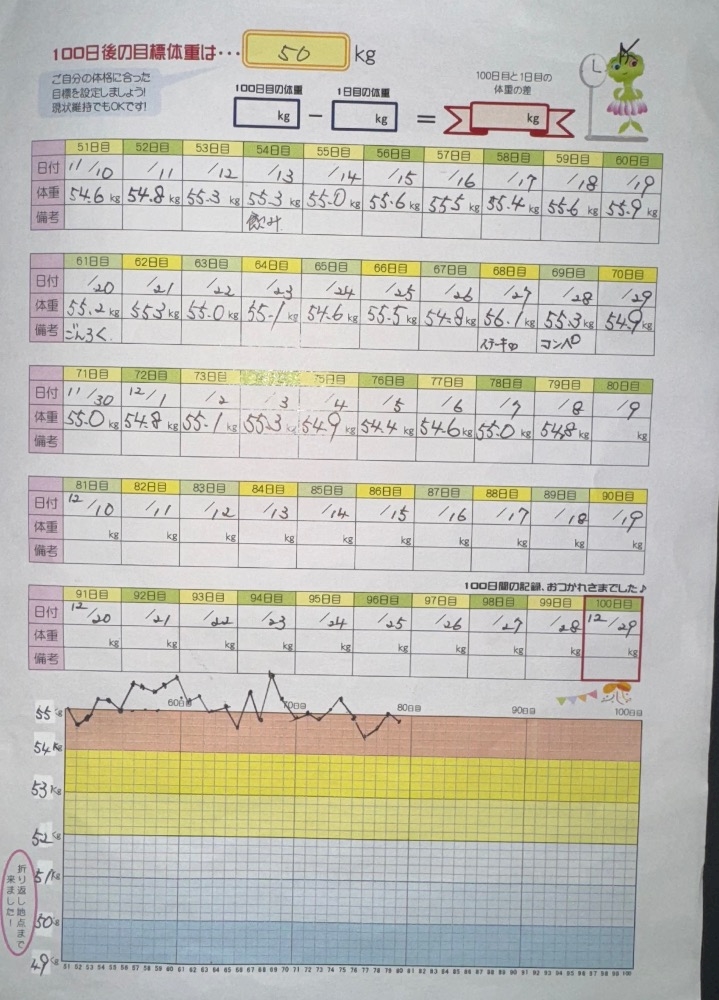 100日後の目標体重は・・・ 50 kg
ご自分の体格に合った
目標を設定しましょう!
現状維持でもOKです!
100日目の体重 1日目の体重 100日目と1日目の
体重の差
kg − kg = kg
51日目 52日目 53日目 54日目 55日目 56日目 57日目 58日目 59日目 60日目
日付 11/10 /11 /12 /13 /14 /15 /16 /17 /18 /19
体重 54.6kg 54.8kg 55.3kg 55.3kg 55.0kg 55.6kg 55.5kg 55.4kg 55.6kg 55.9kg
備考 飲み
61日目 62日目 63日目 64日目 65日目 66日目 67日目 68日目 69日目 70日目
日付 /20 /21 /22 /23 /24 /25 /26 /27 /28 /29
体重 55.2kg 55.3kg 55.0kg 55.1kg 54.6kg 55.5kg 54.8kg 56.1kg 55.3kg 54.9kg
備考 ごんろく コンペ
71日目 72日目 73日目 75日目 76日目 77日目 78日目 79日目 80日目
日付 11/30 12/1 /2 /3 /4 /5 /6 /7 /8 /9
体重 55.0kg 54.8kg 55.1kg 55.3kg 54.9kg 54.4kg 54.6kg 55.0kg 54.8kg kg
備考
81日目 82日目 83日目 84日目 85日目 86日目 87日目 88日目 89日目 90日目
日付 12/10 /11 /12 /13 /14 /15 /16 /17 /18 /19
体重 kg kg kg kg kg kg kg kg kg kg
備考
100日間の記録、おつかれさまでした♪
91日目 92日目 93日目 94日目 95日目 96日目 97日目 98日目 99日目 100日目
日付 12/20 /21 /22 /23 /24 /25 /26 /27 /28 12/29
体重 kg kg kg kg kg kg kg kg kg kg
備考
60日目 70日目 80日目 90日目 100日目
55kg
54kg
53kg
52kg
51kg
50kg
49kg
折り返し地点まで
来ました!
51 52 53 54 55 56 57 58 59 60 61 62 63 64 65 66 67 68 69 70 71 72 73 74 75 76 77 78 79 80 81 82 83 84 85 86 87 88 89 90 91 92 93 94 95 96 97 98 99 100